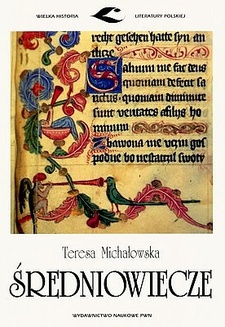 WIELKA HISTORIA
LITERATURY POLSKIEJ
recht geschehen hatte syn· an
Saluum me fac deus
quoniam defecit sa
nctus· quoniam diminute
sunt ueritates a filijs ho
minum
Zbawona me uczyn gos
podne bo nestatczil swoty
Teresa Michałowska
ŚREDNIOWIECZE
WYDAWNICTWO NAUKOWE PWN